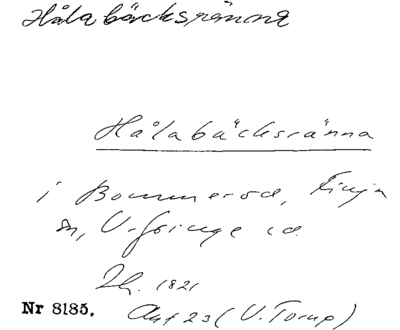 Hålabäcksränna
Hålabäcksränna
i Bommeröd, Finja
sn, V. Göinge hd.
Lh. 1821
Nr 8185. Akt 23 (V. Torup)